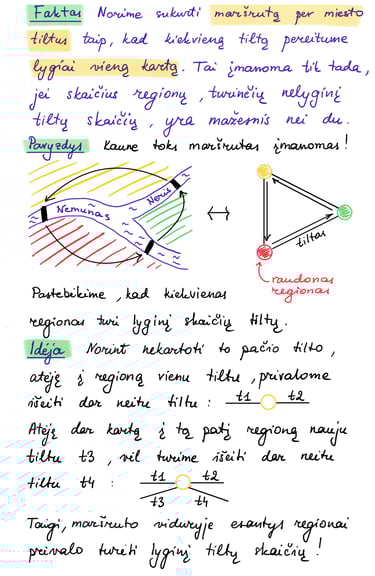 Faktas Norime sukurti maršrutą per miesto
tiltus taip, kad kiekvieną tiltą pereitume
lygiai vieną kartą. Tai įmanoma tik tada,
jei skaičius regionų, turinčių nelyginį
tiltų skaičių, yra mažesnis nei du.
Pavyzdys Kaune toks maršrutas įmanomas!
Neris
Nemunas
tiltas
raudonas
regionas
Pastebėkime, kad kiekvienas
regionas turi lyginį skaičių tiltų.
Idėja Norint nekartoti to pačio tilto,
atėję į regioną vienu tiltu, privalome
išeiti dar neitu tiltu: t1 t2
Atėję dar kartą į tą patį regioną nauju
tiltu t3, vėl turime išeiti dar neitu
tiltu t4: t1 t2
t3 t4
Taigi, maršruto viduryje esantys regionai
privalo turėti lyginį tiltų skaičių!